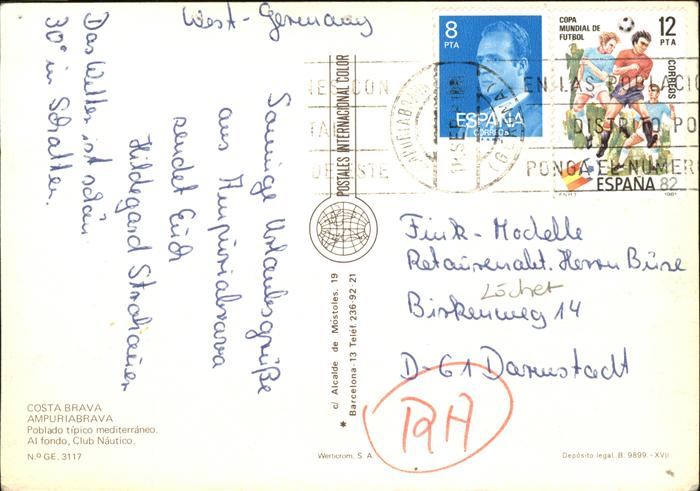 West-Germany
Sonnige Urlaubsgrüße
aus Ampuriabrava
sendet Euch
Hildegard
Das Wetter ist schön
30° im Schatten.
POSTALES INTERNACIONAL COLOR
c/ Alcalde de Móstoles, 19
* Barcelona-13 Teléf. 236-92-21
COSTA BRAVA
AMPURIABRAVA
Poblado típico mediterráneo.
Al fondo, Club Náutico.
N.º GE. 3117
Werticrom, S. A.
Depósito legal. B. 9899.-XVII
8
PTA
ESPAÑA
CORREOS
COPA
MUNDIAL DE
FUTBOL
12
PTA
CORREOS
ESPAÑA 82
1981
EN LAS POBLACIO
DISTRITO PO
PONGA EL NUMER
Fink-Modelle
Retourenabt. Herrn Büse
Löcher
Birkenweg 14
D-61 Darmstadt